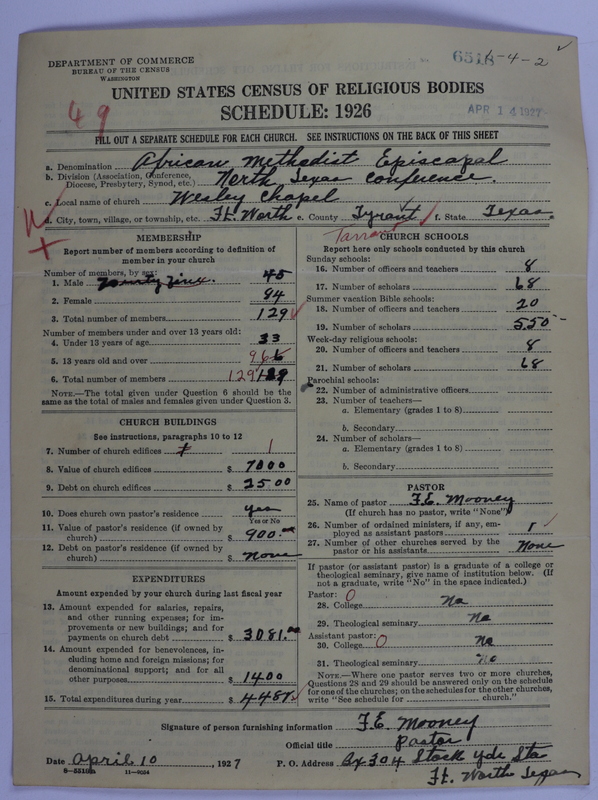 DEPARTMENT OF COMMERCE
BUREAU OF THE CENSUS
WASHINGTON
4-4-2
APR 14 1927
49
UNITED STATES CENSUS OF RELIGIOUS BODIES
SCHEDULE: 1926
FILL OUT A SEPARATE SCHEDULE FOR EACH CHURCH. SEE INSTRUCTIONS ON THE BACK OF THIS SHEET
a. Denomination African Methodist Episcapal
b. Division (Association, Conference, Diocese, Presbytery, Synod, etc.) North Texas Conference.
c. Local name of church Wesley Chapel
d. City, town, village, or township, etc. Ft. Worth e. County Tyrant f. State Texas
Tarrant
MEMBERSHIP
Report number of members according to definition of
member in your church
Number of members, by sex:
1. Male 45
2. Female 84
3. Total number of members 129
Number of members under and over 13 years old:
4. Under 13 years of age 33
5. 13 years old and over 96
6. Total number of members 129 129
NOTE.—The total given under Question 6 should be the
same as the total of males and females given under Question 3.
CHURCH BUILDINGS
See instructions, paragraphs 10 to 12
7. Number of church edifices 1
8. Value of church edifices $ 7000
9. Debt on church edifices $ 2500
10. Does church own pastor's residence yes
Yes or No
11. Value of pastor's residence (if owned by
church) $ 900.00
12. Debt on pastor's residence (if owned by
church) $ none
EXPENDITURES
Amount expended by your church during last fiscal year
13. Amount expended for salaries, repairs,
and other running expenses; for im-
provements or new buildings; and for
payments on church debt $ 3081.00
14. Amount expended for benevolences, in-
cluding home and foreign missions; for
denominational support; and for all
other purposes $ 1400
15. Total expenditures during year $
CHURCH SCHOOLS
Report here only schools conducted by this church
Sunday schools:
16. Number of officers and teachers 8
17. Number of scholars 68
Summer vacation Bible schools:
18. Number of officers and teachers 20
19. Number of scholars 550
Week-day religious schools:
20. Number of officers and teachers 8
21. Number of scholars 68
Parochial schools:
22. Number of administrative officers
23. Number of teachers—
a. Elementary (grades 1 to 8)
b. Secondary
24. Number of scholars—
a. Elementary (grades 1 to 8)
b. Secondary
PASTOR
25. Name of pastor F.E. Mooney
(If church has no pastor, write "None")
26. Number of ordained ministers, if any, em-
ployed as assistant pastors 1
27. Number of other churches served by the
pastor or his assistants None
If pastor (or assistant pastor) is a graduate of a college or
theological seminary, give name of institution below. (If
not a graduate, write "No" in the space indicated.)
Pastor: 0
28. College No
29. Theological seminary No
Assistant pastor: 0
30. College No
31. Theological seminary No
NOTE.—Where one pastor serves two or more churches,
Questions 28 and 29 should be answered only on the schedule
for one of the churches; on the schedules for the other churches,
write "See schedule for church."
Signature of person furnishing information F.E. Mooney
Official title Pastor
Date April 10, 1927 P. O. Address Bx 304 Stock yds Sta
Ft. Worth Texas
11—9054